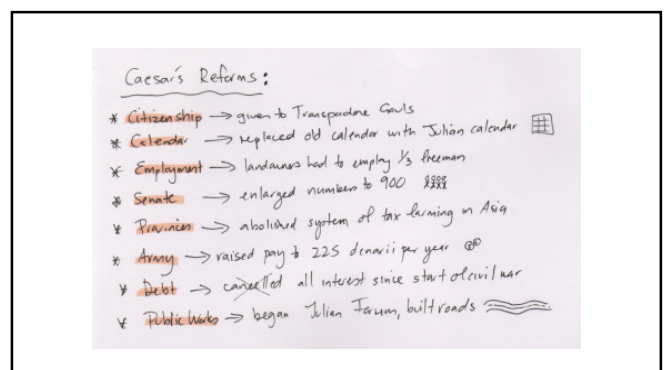 Caesar's Reforms:
* Citizenship → given to Transpadane Gauls
* Calendar → replaced old calendar with Julian calendar
* Employment → landowners had to employ 1/3 freeman
* Senate → enlarged numbers to 900
* Provinces → abolished system of tax farming in Asia
* Army → raised pay to 225 denarii per year
* Debt → cancelled all interest since start of civil war
* Public Works → began Julian Forum, built roads